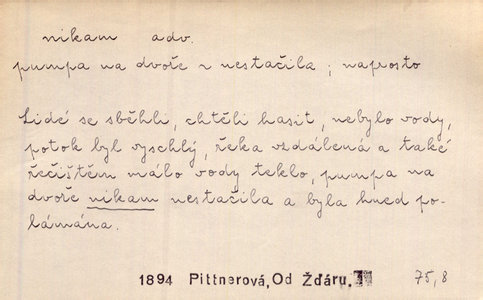 nikam adv.
pumpa na dvoře n nestačila ; naprosto
Lidé se sběhli, chtěli hasit, nebylo vody,
potok byl vyschlý, řeka vzdálená a také
řečištěm málo vody teklo, pumpa na
dvoře nikam nestačila a byla hned po-
lámána.
1894 Pittnerová, Od Žďáru, 75,8